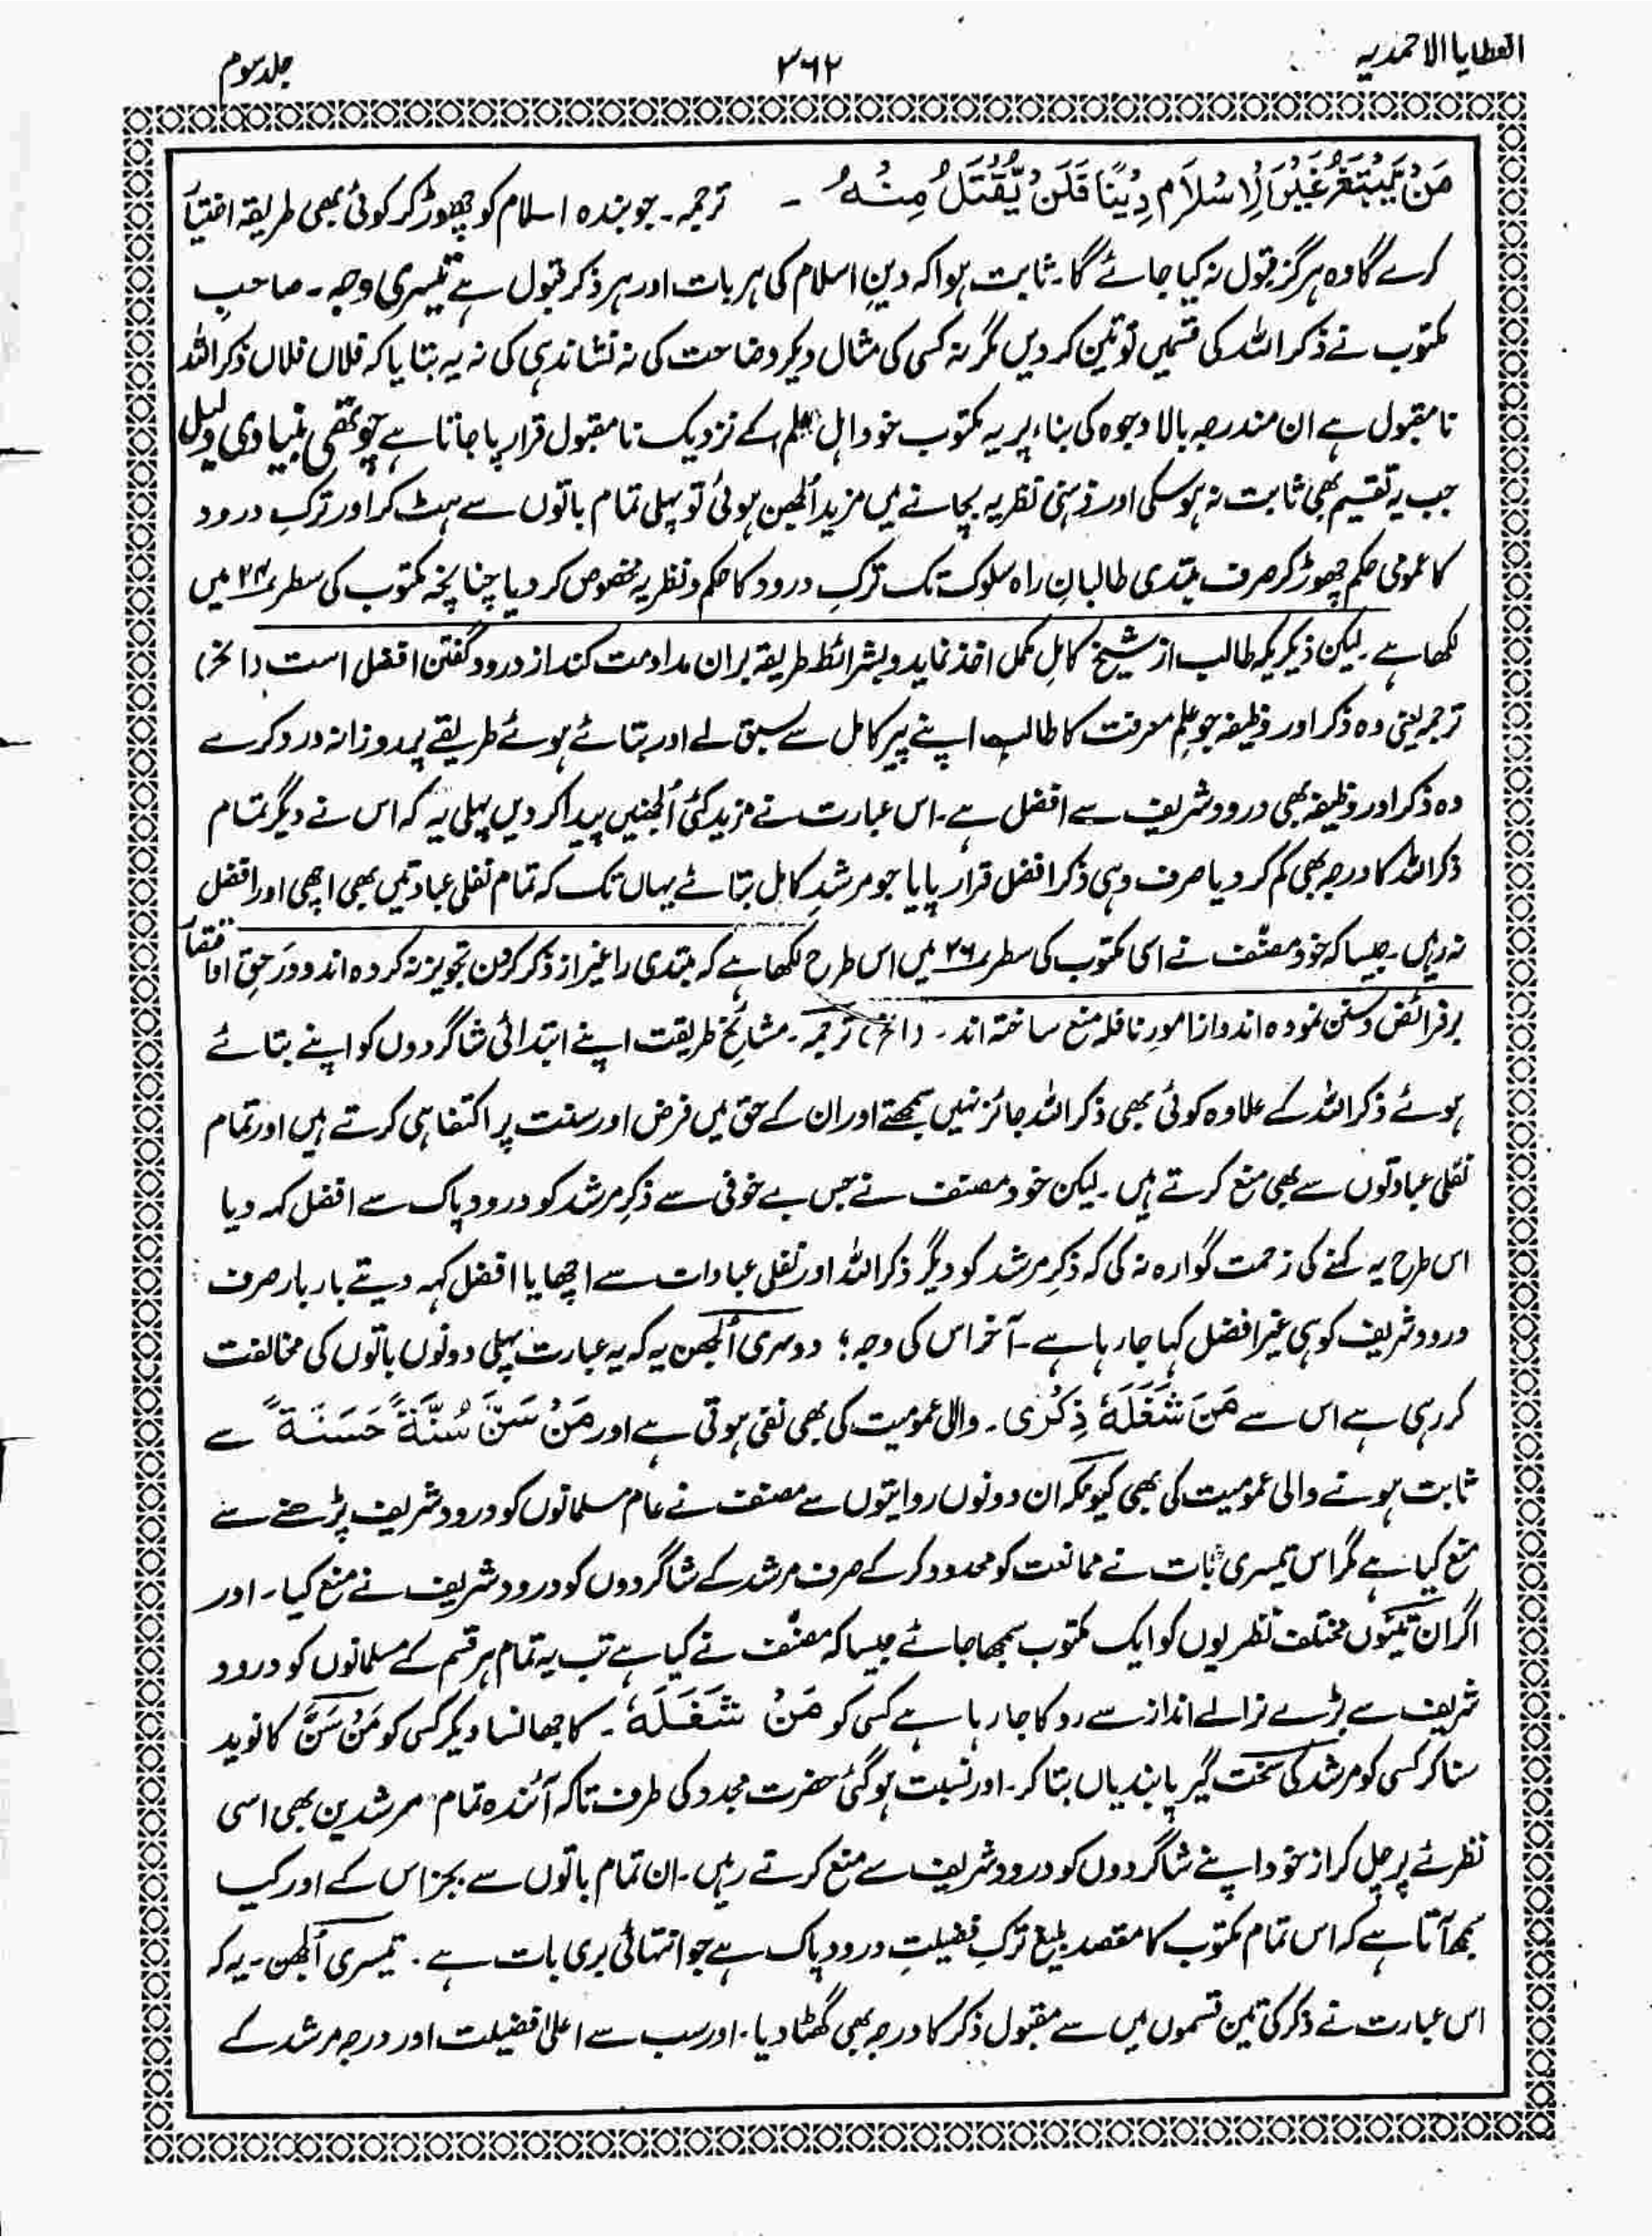 العطایا الاحمدیہ
۳۶۲
جلد سوم
مَنْ یَّبْتَغِ غَیْرَ الْاِسْلَامِ دِیْنًا فَلَنْ یُّقْتَلَ مِنْهُ ۔ ترجمہ۔ جو بندہ اسلام کو چھوڑ کر کوئی بھی طریقہ اختیار
کرے گا وہ ہرگز قبول نہ کیا جائے گا۔ ثابت ہوا کہ دینِ اسلام کی ہر بات اور ہر ذکر قبول ہے تیسری وجہ۔ صاحبِ
مکتوب نے ذکر اللہ کی قسمیں تو تین کر دیں مگر نہ کسی کی مثال دیکر وضاحت کی نہ نشاندہی کی نہ یہ بتایا کہ فلاں فلاں ذکر اللہ
نامقبول ہے ان مندرجہ بالا وجوہ کی بناء پر یہ مکتوب خود اہل علم کے نزدیک نامقبول قرار پا جاتا ہے چوتھی بنیادی دلیل
جب یہ تقسیم بھی ثابت نہ ہوسکی اور ذہنی نظریہ بچانے میں مزید اُلجھن ہوئی تو پہلی تمام باتوں سے ہٹ کر اور ترکِ درود
کا عمومی حکم چھوڑ کر صرف مبتدی طالبانِ راہ سلوک تک ترکِ درود کا حکم و نظریہ مخصوص کر دیا چنانچہ مکتوب کی سطر ۲۴ میں
لکھا ہے۔ لیکن ذکریکہ طالب از شیخ کاملِ مکمل اخذ نماید و بشرائط طریقہ براں مداومت کند از درود گفتن افضل است (الخ)
ترجمہ یعنی وہ ذکر اور وظیفہ جو علمِ معرفت کا طالب اپنے پیر کامل سے سبق لے اور بتائے ہوئے طریقے پر روزانہ ورد کرے
وہ ذکر اور وظیفہ بھی درود شریف سے افضل ہے۔ اس عبارت نے مزید کئی اُلجھنیں پیدا کر دیں پہلی یہ کہ اس نے دیگر تمام
ذکر اللہ کا درجہ بھی کم کر دیا صرف وہی ذکر افضل قرار پایا جو مرشدِ کامل بتائے یہاں تک کہ تمام نفلی عبادتیں بھی اچھی اور افضل
نہ رہیں۔ جیسا کہ خود مصنّف نے اسی مکتوب کی سطر ۲۶ میں اس طرح لکھا ہے کہ مبتدی را غیر از ذکر کردن تجویز نہ کردہ اند و در حقِ او اقتصار
بر فرائض و سنن نمودہ اند و از امورِ نافلہ منع ساختہ اند۔ (الخ) ترجمہ۔ مشائخ طریقت اپنے ابتدائی شاگردوں کو اپنے بتائے
ہوئے ذکر اللہ کے علاوہ کوئی بھی ذکر اللہ جائز نہیں سمجھتے اور ان کے حق میں فرض اور سنت پر اکتفا ہی کرتے ہیں اور تمام
نفلی عبادتوں سے بھی منع کرتے ہیں۔ لیکن خود مصنف نے جس بے خوفی سے ذکرِ مرشد کو درود پاک سے افضل کہہ دیا
اس طرح یہ کہنے کی زحمت گوارہ نہ کی کہ ذکرِ مرشد کو دیگر ذکر اللہ اور نفلی عبادات سے اچھا یا افضل کہہ دیتے بار بار صرف
درود شریف کو ہی غیر افضل کہا جا رہا ہے۔ آخر اس کی وجہ؟ دوسری اُلجھن یہ کہ یہ عبارت پہلی دونوں باتوں کی مخالفت
کر رہی ہے اس سے مَنْ شَغَلَهٗ ذِکْرِی۔ والی عمومیت کی بھی نفی ہوتی ہے اور مَنْ سَنَّ سُنَّةً حَسَنَةً سے
ثابت ہونے والی عمومیت کی بھی کیونکہ ان دونوں روایتوں سے مصنف نے عام مسلمانوں کو درود شریف پڑھنے سے
منع کیا ہے مگر اس تیسری بات نے ممانعت کو محدود کر کے صرف مرشد کے شاگردوں کو درود شریف نے منع کیا۔ اور
اگر ان تینوں مختلف نظریوں کو ایک مکتوب سمجھا جائے جیسا کہ مصنّف نے کیا ہے تب یہ تمام ہر قسم کے مسلمانوں کو درود
شریف سے بڑے نرالے انداز سے روکا جا رہا ہے کسی کو مَنْ شَغَلَهٗ۔ کا جھانسا دیکر کسی کو مَنْ سَنَّ کا نوید
سنا کر کسی کو مرشد کی سخت گیر پابندیاں بتا کر۔ اور نسبت ہو گئی حضرت مجدد کی طرف تاکہ آئندہ تمام مرشدین بھی اسی
نظرئے پر چل کر از خود اپنے شاگردوں کو درود شریف سے منع کرتے رہیں۔ ان تمام باتوں سے بجز اس کے اور کیا
سمجھ آتا ہے کہ اس تمام مکتوب کا مقصد بلیغ ترکِ فضیلتِ درود پاک ہے جو انتہائی بری بات ہے۔ تیسری اُلجھن۔ یہ کہ
اس عبارت نے ذکر کی تین قسموں میں سے مقبول ذکر کا درجہ بھی گھٹا دیا۔ اور سب سے اعلیٰ فضیلت اور درجہ مرشد کے